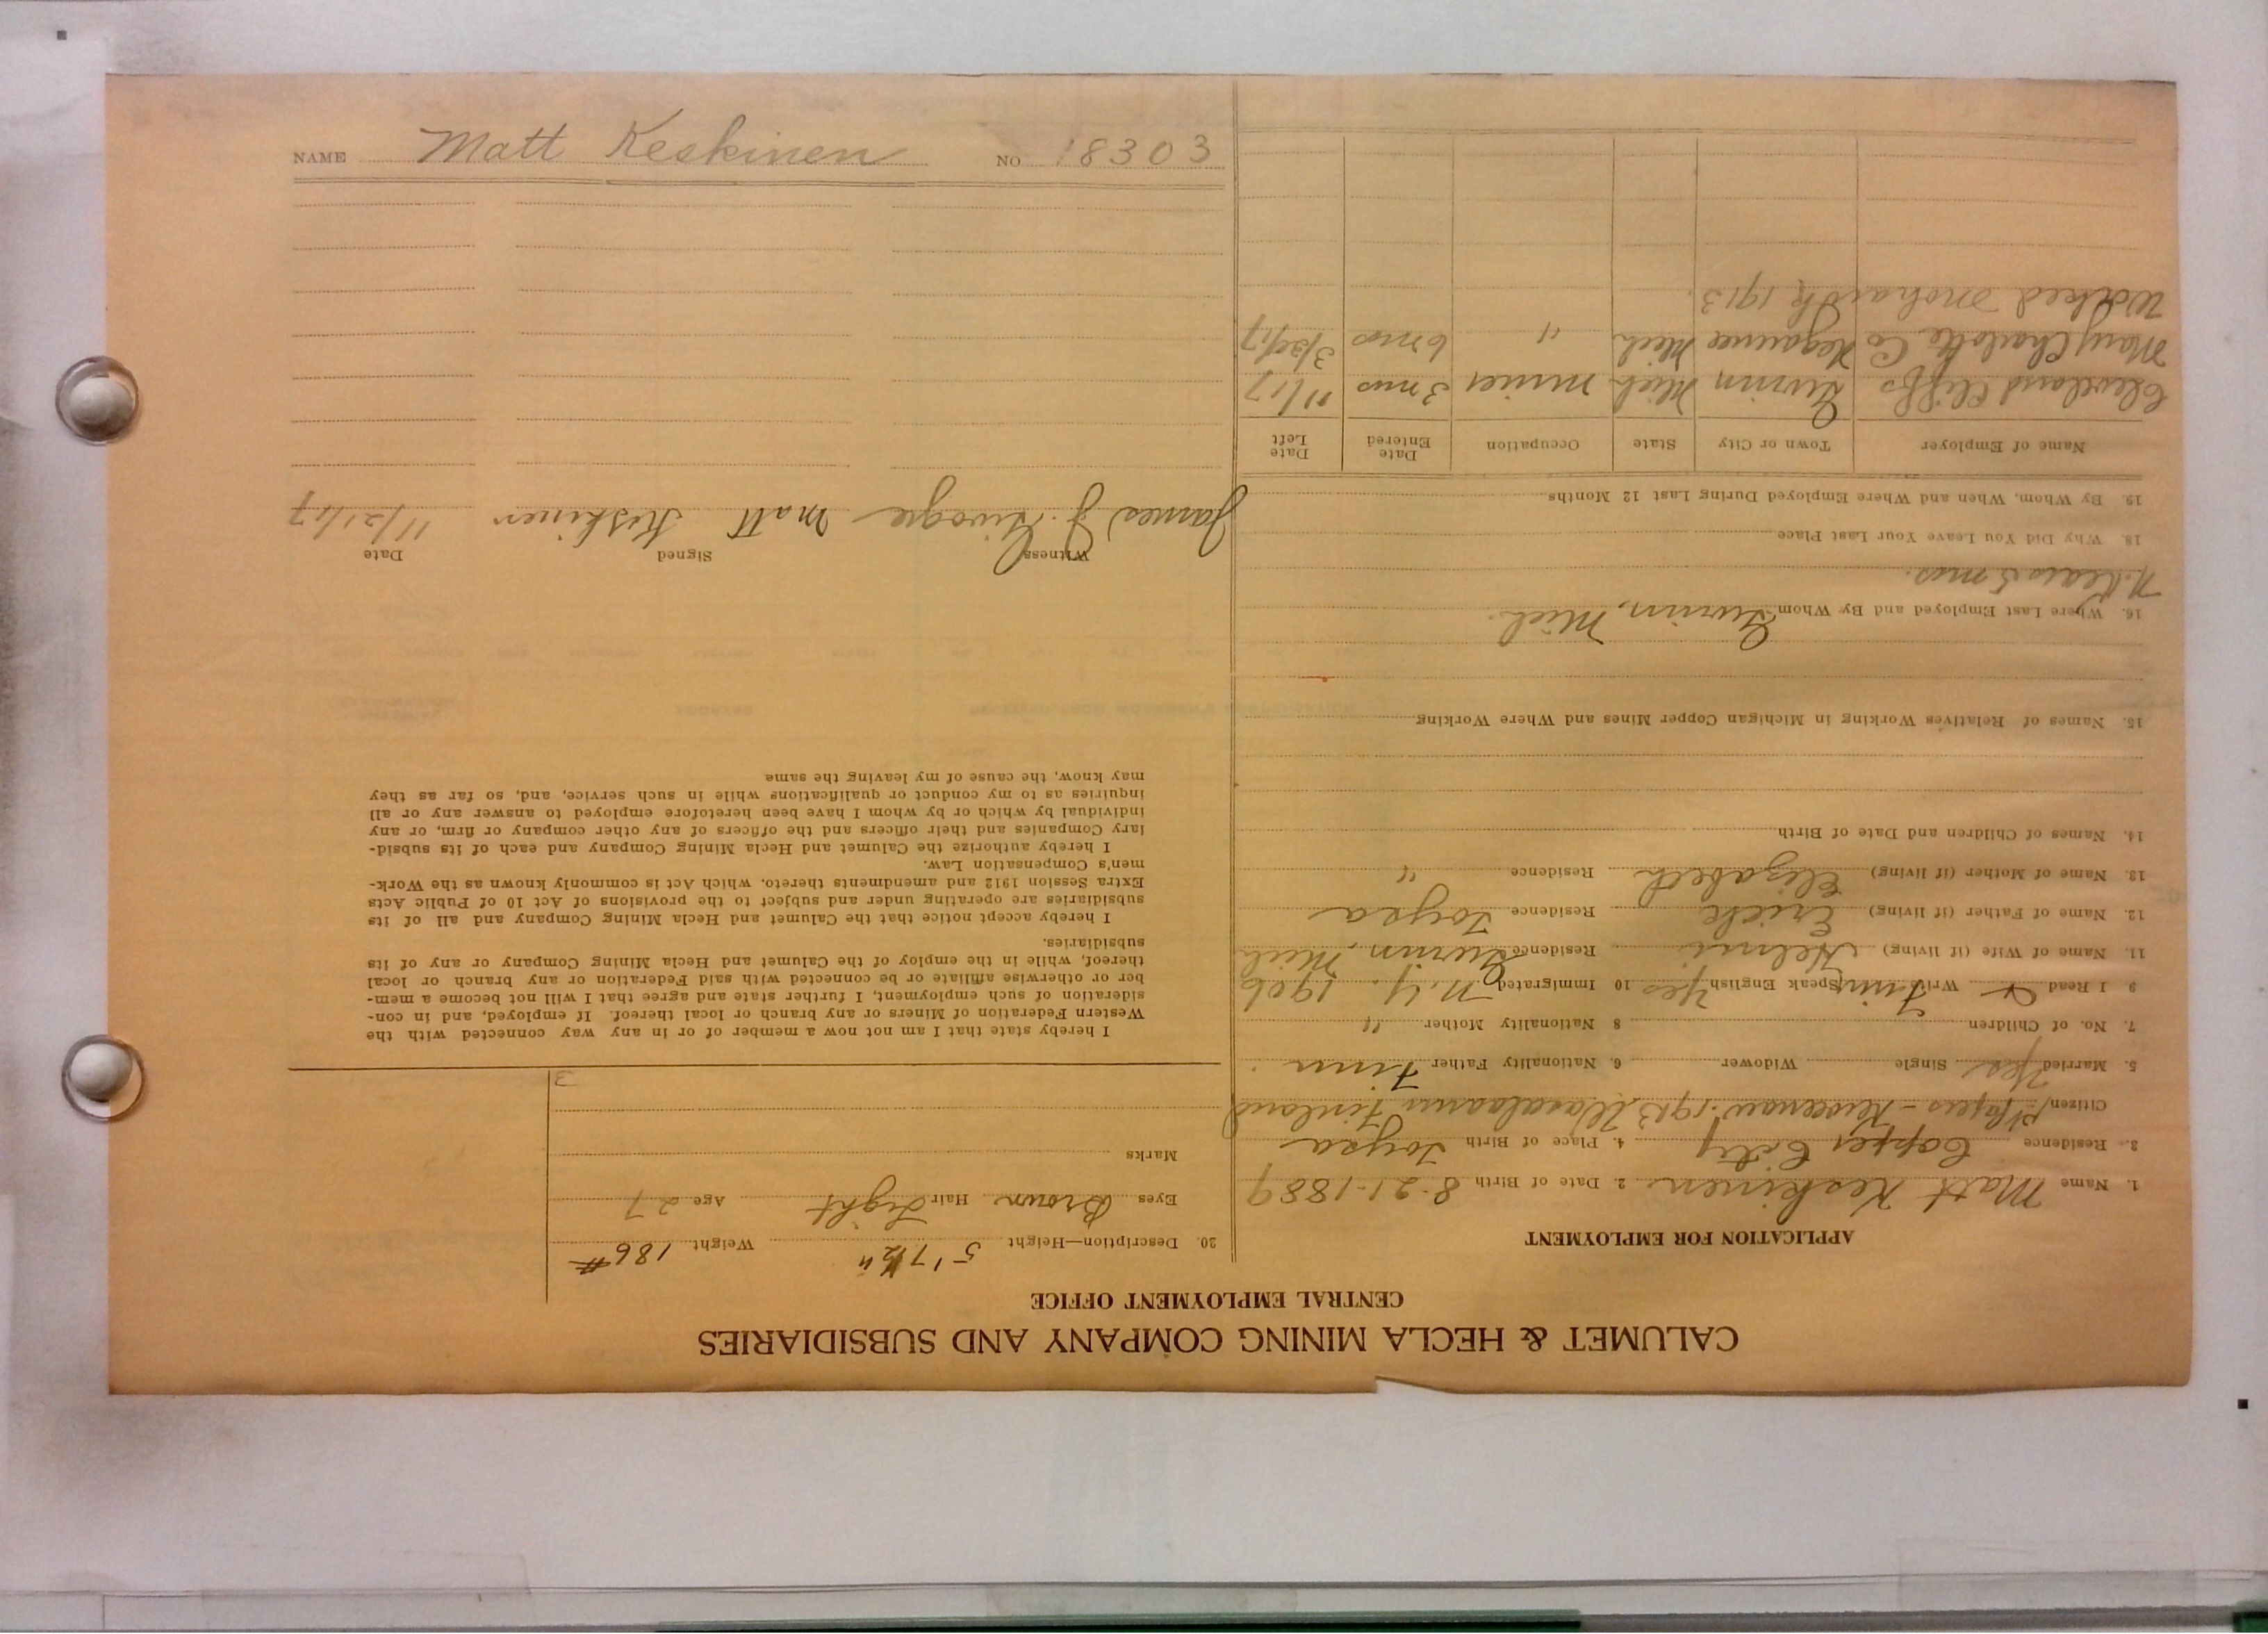 CALUMET & HECLA MINING COMPANY AND SUBSIDIARIES
CENTRAL EMPLOYMENT OFFICE
APPLICATION FOR EMPLOYMENT
1. Name Matt Keskinen 2. Date of Birth 8-21-1889
3. Residence Copper City 4. Place of Birth Toysa
Citizen Papers - Keweenaw 1913 Waasalaanis Finland
5. Married Yes Single Widower 6. Nationality Father Finn
7. No. of Children 8 Nationality Mother "
9 I Read & Write Finn Speak English Yes 10 Immigrated N.Y. 1906
11. Name of Wife (if living) Helmi Residence Gwinn, Mich
12. Name of Father (if living) Erick Residence Toysa
13. Name of Mother (if living) Elizabeth Residence "
14. Names of Children and Date of Birth
15. Names of Relatives Working in Michigan Copper Mines and Where Working
16. Where Last Employed and By Whom Gwinn, Mich.
N. Kears 5 mos.
18. Why Did You Leave Your Last Place
19. By Whom, When and Where Employed During Last 12 Months
Name of Employer Town or City State Occupation Date Entered Date Left
Cleveland Cliffs Gwinn Mich miner 3 mos 11/17
Mary Charlotte Co Negaunee Mich " 6 mos 3/30/17
Worked Mohawk 1913.
20. Description—Height 5' 7 1/2" Weight 186 #
Eyes Brown Hair Light Age 27
Marks
3
I hereby state that I am not now a member of or in any way connected with the
Western Federation of Miners or any branch or local thereof. If employed, and in con-
sideration of such employment, I further state and agree that I will not become a mem-
ber or otherwise affiliate or be connected with said Federation or any branch or local
thereof, while in the employ of the Calumet and Hecla Mining Company or any of its
subsidiaries.
I hereby accept notice that the Calumet and Hecla Mining Company and all of its
subsidiaries are operating under and subject to the provisions of Act 10 of Public Acts
Extra Session 1912 and amendments thereto, which Act is commonly known as the Work-
men's Compensation Law.
I hereby authorize the Calumet and Hecla Mining Company and each of its subsid-
iary Companies and their officers and the officers of any other company or firm, or any
individual by which or by whom I have been heretofore employed to answer any or all
inquiries as to my conduct or qualifications while in such service, and, so far as they
may know, the cause of my leaving the same
Witness Signed Date
James J. Matt Keskinen 11/21/17
NAME Matt Keskinen NO. 18303